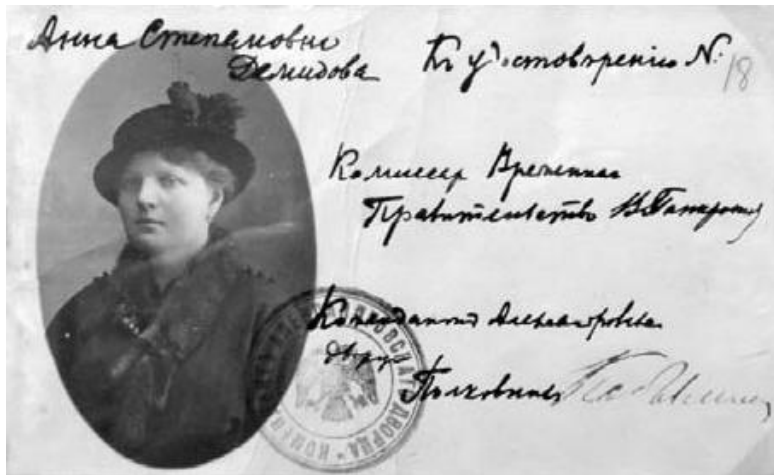 Анна Степановна
Демидова
Къ удостовѣренію №: 18
Комиссар Временнаго
Правительства
Комендантъ Александровск.
дворца
Полковникъ